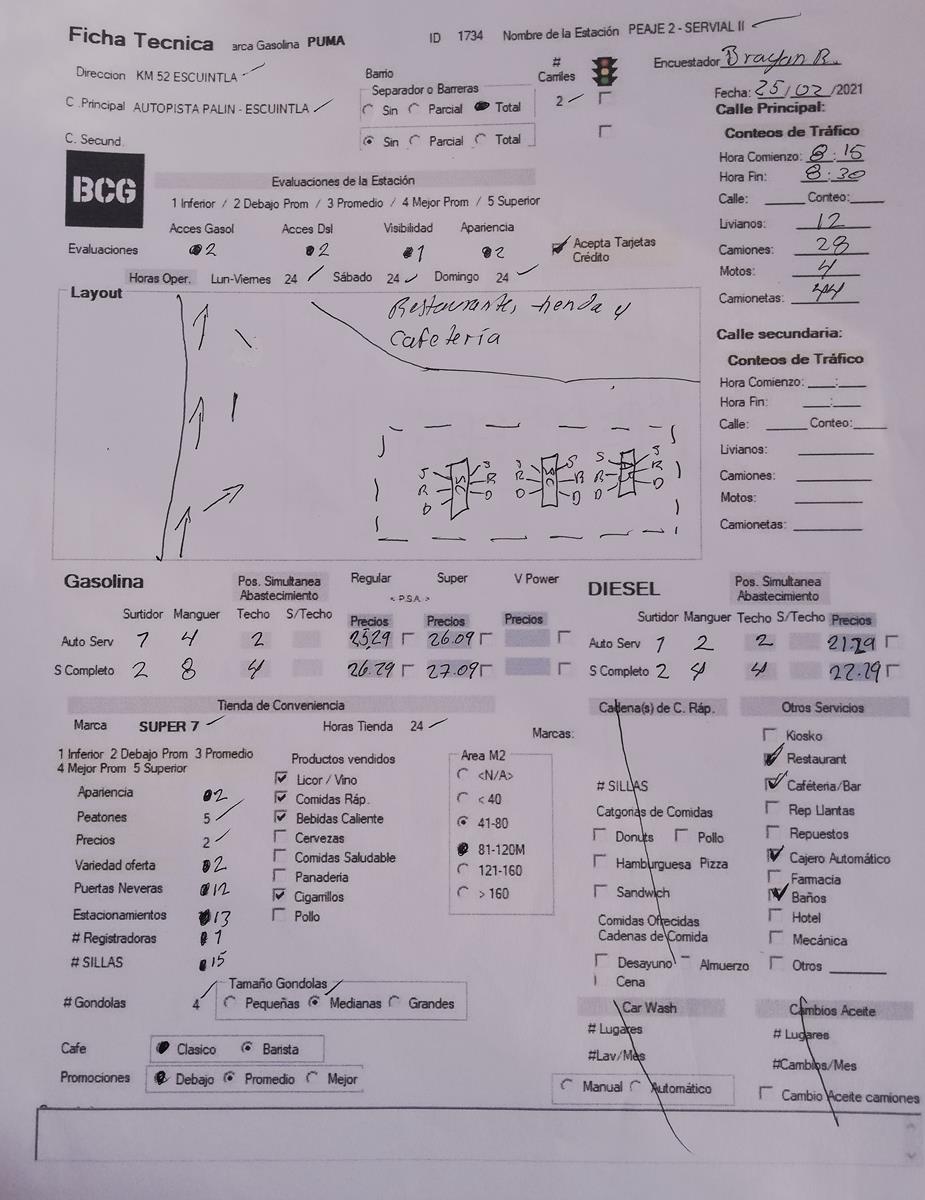 Ficha Tecnica arca Gasolina PUMA ID 1734 Nombre de la Estación PEAJE 2 - SERVIAL II
Direccion KM 52 ESCUINTLA
C .Principal AUTOPISTA PALIN - ESCUINTLA
C. Secund.
Barrio
Separador o Barreras
Sin Parcial Total
Sin Parcial Total
# Carriles
2
Encuestador Brayan R.
Fecha: 25/02/2021
Calle Principal:
Conteos de Tráfico
Hora Comienzo: 8:15
Hora Fin: 8:30
Calle: Conteo:
Livianos: 12
Camiones: 28
Motos: 4
Camionetas: 44
BCG
Evaluaciones de la Estación
1 Inferior / 2 Debajo Prom / 3 Promedio / 4 Mejor Prom / 5 Superior
Acces Gasol Acces Dsl Visibilidad Apariencia
Evaluaciones 2 2 1 2
Acepta Tarjetas
Crédito
Horas Oper. Lun-Viernes 24 Sábado 24 Domingo 24
Layout
Restaurante, tienda y
Cafetería
S S S S S S
R R R R R R
D D D D D D
Calle secundaria:
Conteos de Tráfico
Hora Comienzo: __:__
Hora Fin: __:__
Calle: Conteo:
Livianos:
Camiones:
Motos:
Camionetas:
Gasolina
Pos. Simultanea
Abastecimiento
Regular Super V Power
< P.S.A. >
Surtidor Manguer Techo S/Techo Precios Precios Precios
Auto Serv 1 4 2 25.29 26.09
S Completo 2 8 4 26.29 27.09
DIESEL
Pos. Simultanea
Abastecimiento
Surtidor Manguer Techo S/Techo Precios
Auto Serv 1 2 2 21.29
S Completo 2 4 4 22.29
Tienda de Conveniencia
Marca SUPER 7 Horas Tienda 24
1 Inferior 2 Debajo Prom 3 Promedio
4 Mejor Prom 5 Superior
Apariencia 2
Peatones 5
Precios 2
Variedad oferta 2
Puertas Neveras 12
Estacionamientos 13
# Registradoras 1
# SILLAS 15
# Gondolas 4
Tamaño Gondolas
Pequeñas Medianas Grandes
Cafe Clasico Barista
Promociones Debajo Promedio Mejor
Productos vendidos
Licor / Vino
Comidas Ráp.
Bebidas Caliente
Cervezas
Comidas Saludable
Panaderia
Cigarrillos
Pollo
Area M2
<N/A>
< 40
41-80
81-120M
121-160
> 160
Marcas:
Cadena(s) de C. Ráp.
# SILLAS
Catgorias de Comidas
Donuts Pollo
Hamburguesa Pizza
Sandwich
Comidas Ofrecidas
Cadenas de Comida
Desayuno Almuerzo
Cena
Car Wash
# Lugares
#Lav/Mes
Manual Automático
Otros Servicios
Kiosko
Restaurant
Caféteria/Bar
Rep Llantas
Repuestos
Cajero Automático
Farmacia
Baños
Hotel
Mecánica
Otros
Cambios Aceite
# Lugares
#Cambios/Mes
Cambio Aceite camiones